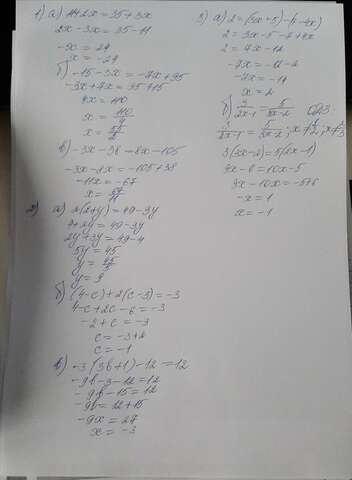 1) а) 11+2x=35+3x
2x-3x=35-11
-x=24
x=-24
б) -15-3x=-7x+95
-3x+7x=95+15
4x=110
x=110/4
x=55/2
в) -3x-38=8x-105
-3x-8x=-105+38
-11x=-67
x=67/11
2) а) 2(2+y)=49-3y
4+2y=49-3y
2y+3y=49-4
5y=45
y=45/5
y=9
б) (4-c)+2(c-3)=-3
4-c+2c-6=-3
-2+c=-3
c=-3+2
c=-1
в) -3(3b+1)-12=12
-9b-3-12=12
-9b-15=12
-9b=12+15
-9x=27
x=-3
3) а) 2=(3x-5)-(7-4x)
2=3x-5-7+4x
2=7x-12
-7x=-12-2
-7x=-14
x=2
б) 3/2x-1=5/3x-2 ОДЗ:
3/2x-1=5/3x-2; x≠1/2, x≠2/3
3(3x-2)=5(2x-1)
9x-6=10x-5
9x-10x=-5+6
-x=1
x=-1